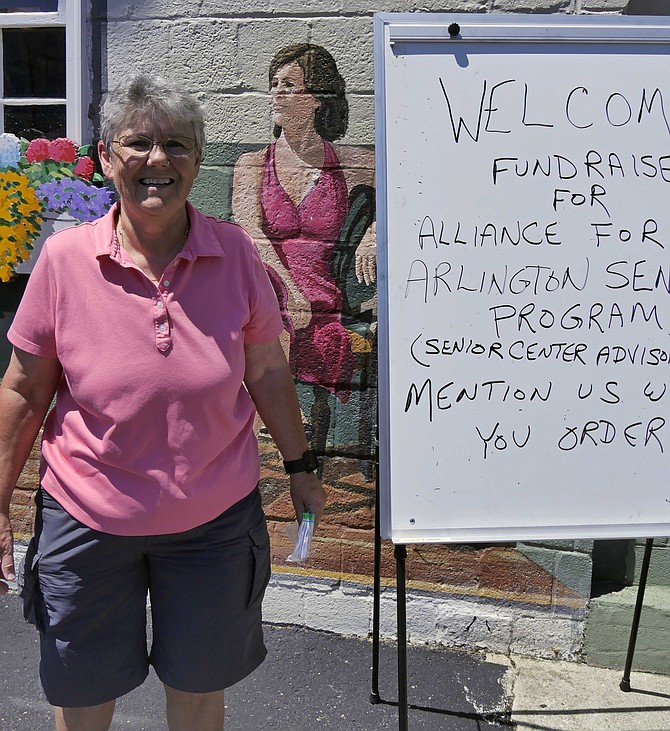 WELCOM
FUNDRAISE
FOR
ALLIANCE FOR
ARLINGTON SEN
PROGRAM
(SENIOR CENTER ADVISO
MENTION US W
YOU ORDER